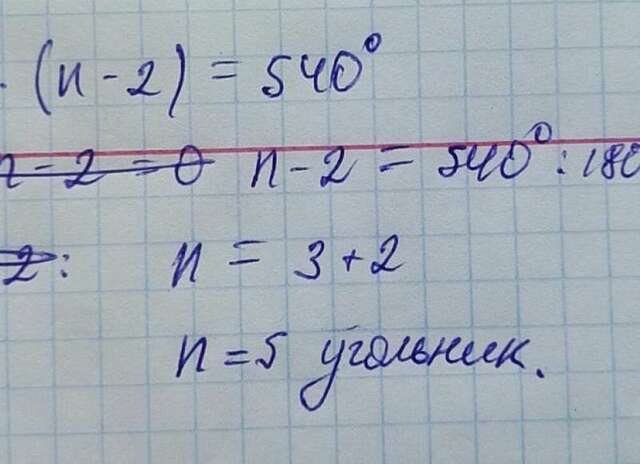 · (n - 2) = 540°
n - 2 = 0 n - 2 = 540° : 180
2 : n = 3 + 2
n = 5 угольник.